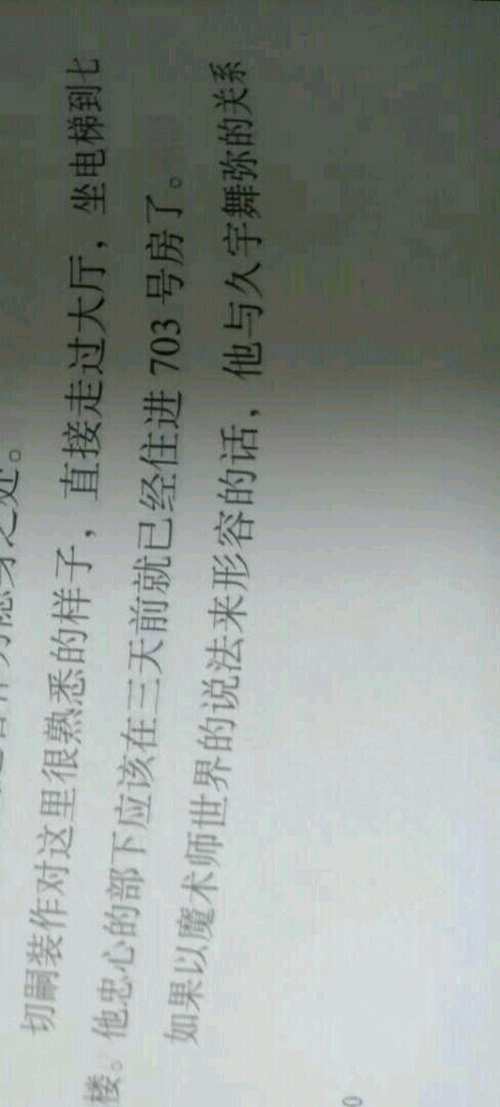 隐身之处。
切嗣装作对这里很熟悉的样子，直接走过大厅，坐电梯到七
楼。他忠心的部下应该在三天前就已经住进 703 号房了。
如果以魔术师世界的说法来形容的话，他与久宇舞弥的关系
0